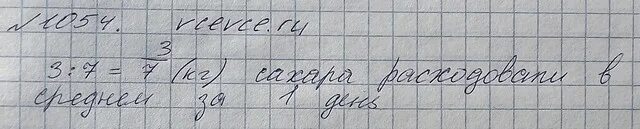 №1054. vcevce.ru
3:7 = 3/7 (кг) сахара расходовали в
среднем за 1 день